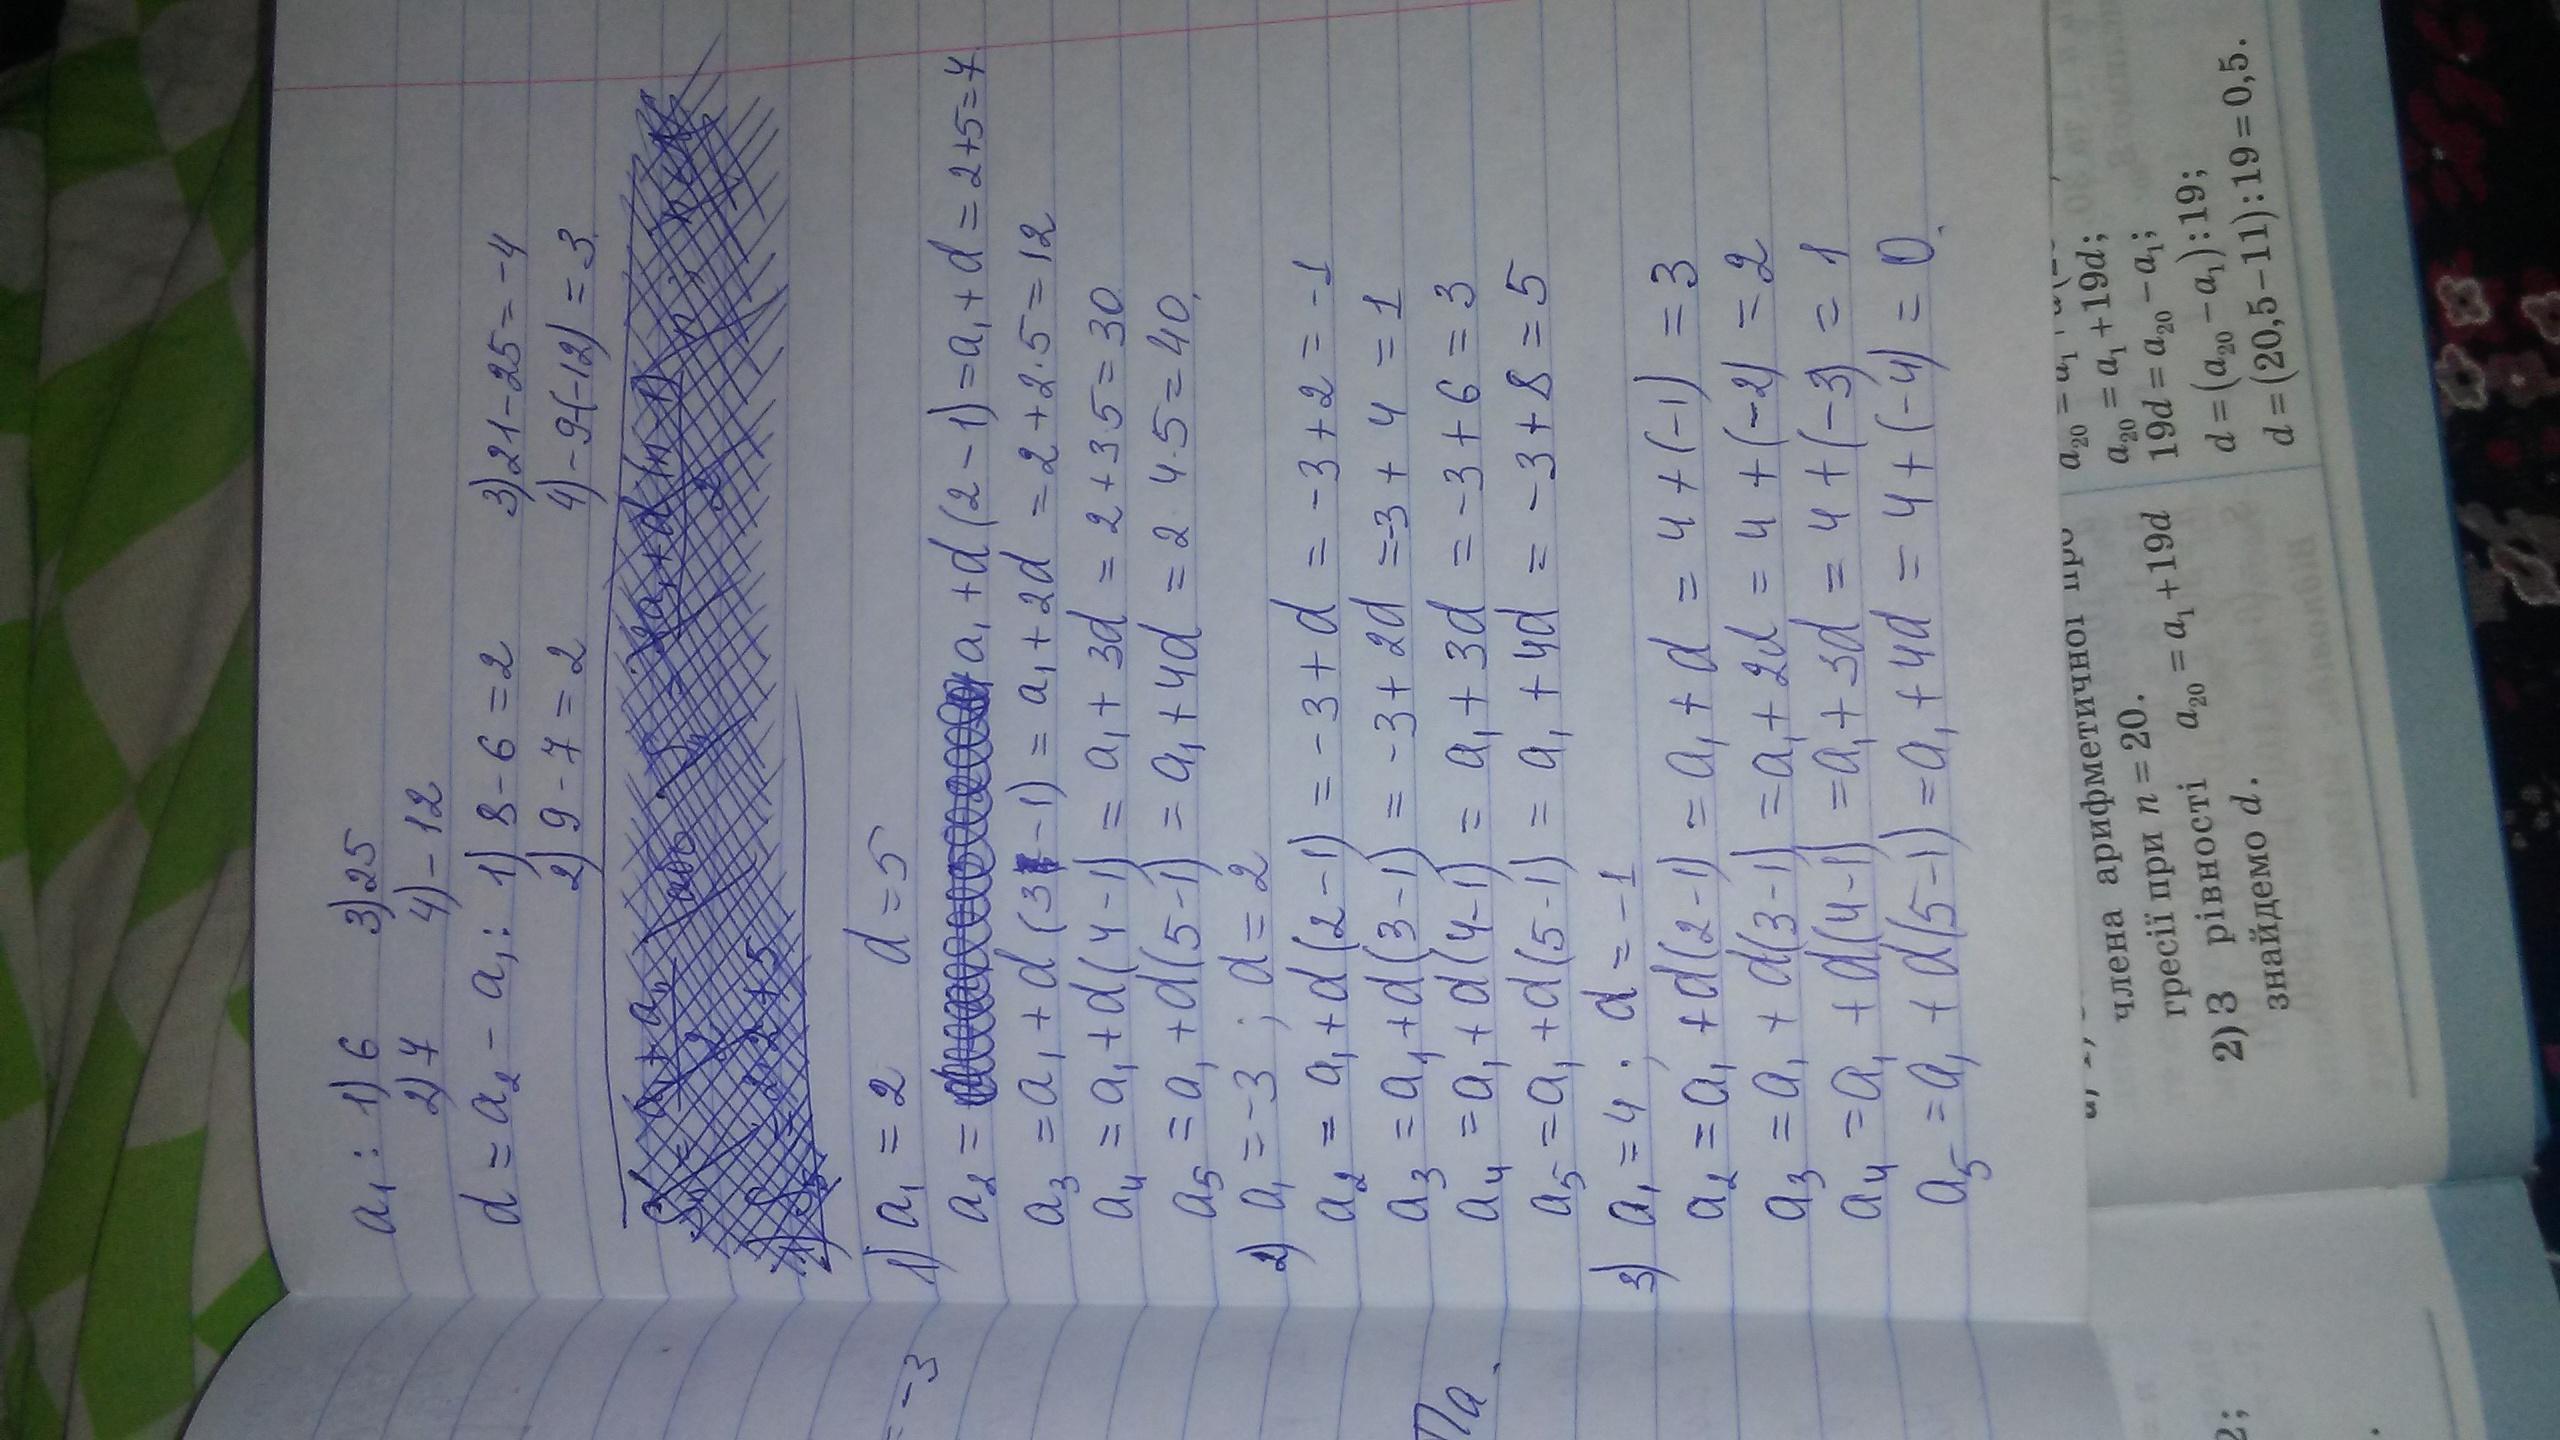 a₁: 1) 6 3) 25
2) 7 4) -12
d = a₂ - a₁: 1) 8 - 6 = 2 3) 21 - 25 = -4
2) 9 - 7 = 2 4) -9-(-12) = 3
1) a₁ = 2 d = 5
a₂ = a₁ + d (2 - 1) = a₁ + d = 2+5=7
a₃ = a₁ + d (3 - 1) = a₁ + 2d = 2 + 2·5 = 12
a₄ = a₁ + d (4 - 1) = a₁ + 3d = 2 + 3 5 = 30
a₅ = a₁ + d (5 - 1) = a₁ + 4d = 2 4·5 = 40
2) a₁ = -3 ; d = 2
a₂ = a₁ + d (2 - 1) = -3 + d = -3 + 2 = -1
a₃ = a₁ + d (3 - 1) = -3 + 2d = -3 + 4 = 1
a₄ = a₁ + d (4-1) = a₁ + 3d = -3 + 6 = 3
a₅ = a₁ + d (5 - 1) = a₁ + 4d = -3 + 8 = 5
3) a₁ = 4 ; d = -1
a₂ = a₁ + d (2 - 1) = a₁ + d = 4 + (-1) = 3
a₃ = a₁ + d (3 - 1) = a₁ + 2d = 4 + (-2) = 2
a₄ = a₁ + d (4 - 1) = a₁ + 3d = 4 + (-3) = 1
a₅ = a₁ + d (5 - 1) = a₁ + 4d = 4 + (-4) = 0.
= -3
члена арифметичної
гресії при n = 20.
2) З рівності a₂₀ = a₁ + 19d
знайдемо d.
a₂₀ = a₁ + 19d;
19d = a₂₀ - a₁;
d = (a₂₀ - a₁) : 19;
d = (20,5 - 11) : 19 = 0,5.
2;